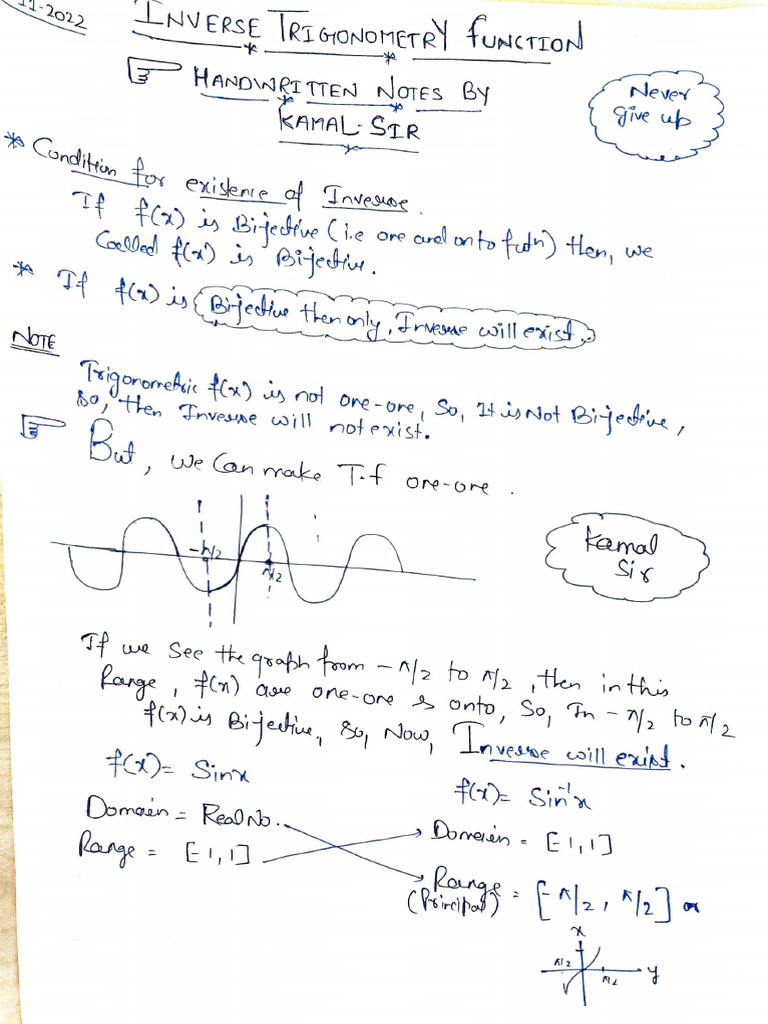 11-2022
INVERSE TRIGONOMETRY FUNCTION
HANDWRITTEN NOTES BY
KAMAL-SIR
Never
give up
* Condition for existence of Inverse.
If f(x) is Bijective (i.e one and onto futn) then, we
Coelled f(x) is Bijective.
* If f(x) is Bijective then only, Inverse will exist.
NOTE
Trigonometric f(x) is not one-one, So, It is Not Bijective,
so, then Inverse will not exist.
But, we Can make T.f one-one.
-π/2
π/2
Kamal
Sir
If we See the graph from -π/2 to π/2, then in this
Range, f(x) are one-one & onto, So, In -π/2 to π/2
f(x) is Bijective, So, Now, Inverse will exist.
f(x)= Sinx
f(x)= Sin⁻¹x
Domain = Real No.
Domain = [-1,1]
Range = [-1,1]
Range = [-π/2, π/2] or
(Principal)
x
π/2
π/2
y